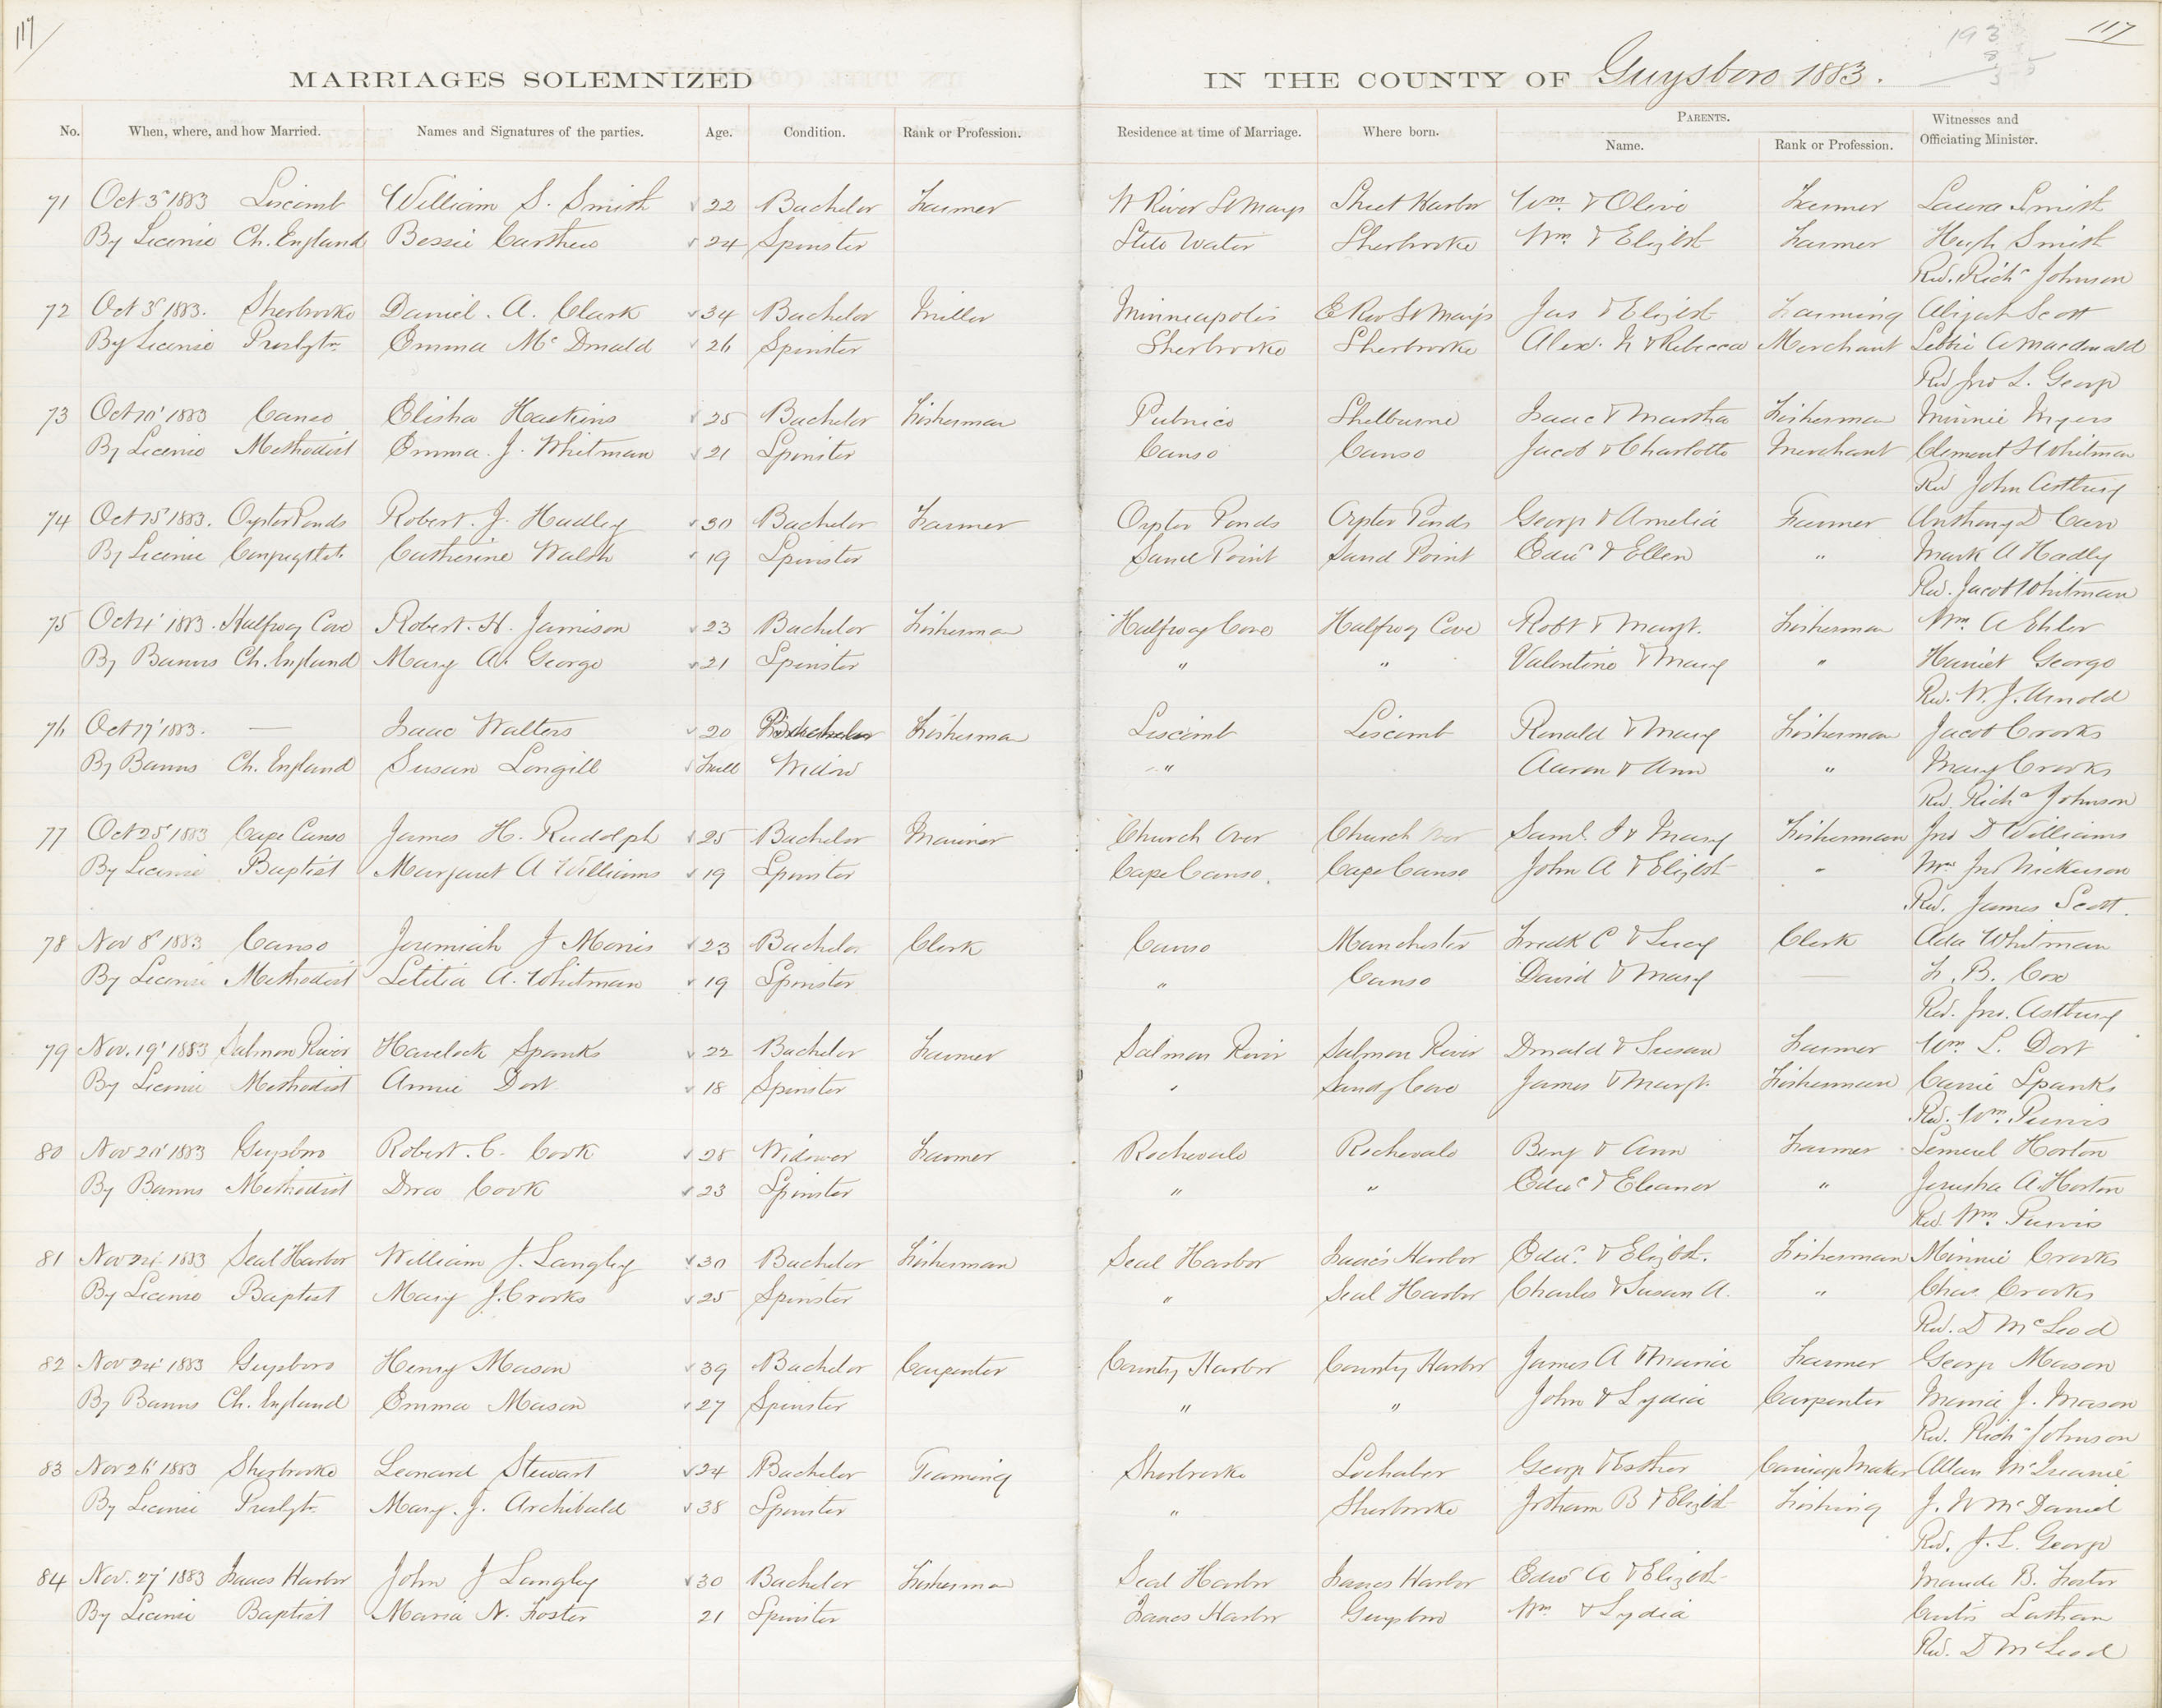 117 117
MARRIAGES SOLEMNIZED IN THE COUNTY OF Guysboro 1883.
No. When, where, and how Married. Names and Signatures of the parties. Age. Condition. Rank or Profession. Residence at time of Marriage. Where born. PARENTS. Name. Rank or Profession. Witnesses and Officiating Minister.
71 Oct 3 1883 Liscomb William S. Smith 22 Bachelor Farmer W River St Marys Sheet Harbor Wm & Olive Farmer Laura Smith
By License Ch. England Bessie Carthew 24 Spinster Still Water Sherbrooke Wm & Elizbt Farmer Hugh Smith
Rev. Richd Johnson
72 Oct 3 1883. Sherbrooke Daniel. A. Clark 34 Bachelor Miller Minneapolis E Riv St Mary's Jas & Elizbt Farming Abijah Scott
By License Presbytn Emma McDonald 26 Spinster Sherbrooke Sherbrooke Alex. N & Rebecca Merchant Lettie A Macdonald
Rev Jno L. George
73 Oct 10 1883 Canso Elisha Haskins 25 Bachelor Fisherman Pubnico Shelburne Isaac & Martha Fisherman Minnie Myers
By License Methodist Emma. J. Whitman 21 Spinster Canso Canso Jacob & Charlotte Merchant Clement H Whitman
Rev John Astbury
74 Oct 15 1883. Oyster Ponds Robert. J. Hadley 30 Bachelor Farmer Oyster Ponds Oyster Ponds George & Amelia Farmer Anthony D Carr
By License Congregtl Catherine Walsh 19 Spinster Sand Point Sand Point Edwd & Ellen " Mark A Hadley
Rev. Jacob Whitman
75 Oct 1883. Halfway Cove Robert. H. Jamison 23 Bachelor Fisherman Halfway Cove Halfway Cove Robt & Margt. Fisherman Wm. A Ehler
By Banns Ch. England Mary A. George 21 Spinster " " Valentine & Mary " Harriet George
Rev. W. J. Arnold
76 Oct 17 1883. — Isaac Walters 20 Bachelor Fisherman Liscomb Liscomb Ronald & Mary Fisherman Jacob Crooks
By Banns Ch. England Susan Longill Full Widow " Aaron & Ann " Mary Crooks
Rev. Richd Johnson
77 Oct 25 1883 Cape Canso James H. Rudolph 25 Bachelor Mariner Church Over Church Over Saml. J & Mary Fisherman Jno D Williams
By License Baptist Margaret A Williams 19 Spinster Cape Canso. Cape Canso John A & Elizbt " Mrs Jno Nickerson
Rev. James Scott.
78 Nov 8 1883 Canso Jeremiah J Morris 23 Bachelor Clerk Canso Manchester Fredk C & Lucy Clerk Ada Whitman
By License Methodist Letitia A. Whitman 19 Spinster " Canso David & Mary — B. Cox
Rev. Jno. Astbury
79 Nov. 19 1883 Salmon River Havelock Spanks 22 Bachelor Farmer Salmon River Salmon River Donald & Susan Farmer Wm. L. Dort
By License Methodist Annie Dort 18 Spinster " Sandy Cove James & Margt. Fisherman Carrie Spanks
Rev. Wm. Purvis
80 Nov 20 1883 Guysboro Robert. C. Cook 28 Widower Farmer Rochevale Rochevale Benj & Ann Farmer Lemuel Horton
By Banns Methodist Dora Cook 23 Spinster " " Edwd & Eleanor " Jerusha A. Horton
Rev. Wm. Purvis
81 Nov 24 1883 Seal Harbor William J. Langley 30 Bachelor Fisherman Seal Harbor Isaac's Harbor Edwd. & Elizbt. Fisherman Minnie Crooks
By License Baptist Mary J. Crooks 25 Spinster " Seal Harbor Charles & Susan A. " Chas. Crooks
Rev. D McLeod
82 Nov 24 1883 Guysboro Henry Mason 39 Bachelor Carpenter County Harbor County Harbor James A & Maria Farmer George Mason
By Banns Ch. England Emma Mason 27 Spinster " " John & Lydia Carpenter Maria J. Mason
Rev. Richd Johnson
83 Nov 26 1883 Sherbrooke Leonard Stewart 24 Bachelor Teaming Sherbrooke Lochaber George & Esther Carriage Maker Allan
By License Presbytn Mary. J. Archibald 38 Spinster " Sherbrooke Jotham B & Elizbt Fishing J. W McDaniel
Rev. J. L. George
84 Nov. 27 1883 Isaacs Harbor John J Langley 30 Bachelor Fisherman Seal Harbor Isaacs Harbor Edwd A & Elizbt Maude B. Foster
By License Baptist Maria N. Foster 21 Spinster Isaacs Harbor Guysboro Wm & Lydia Curtis Latham
Rev. D McLeod